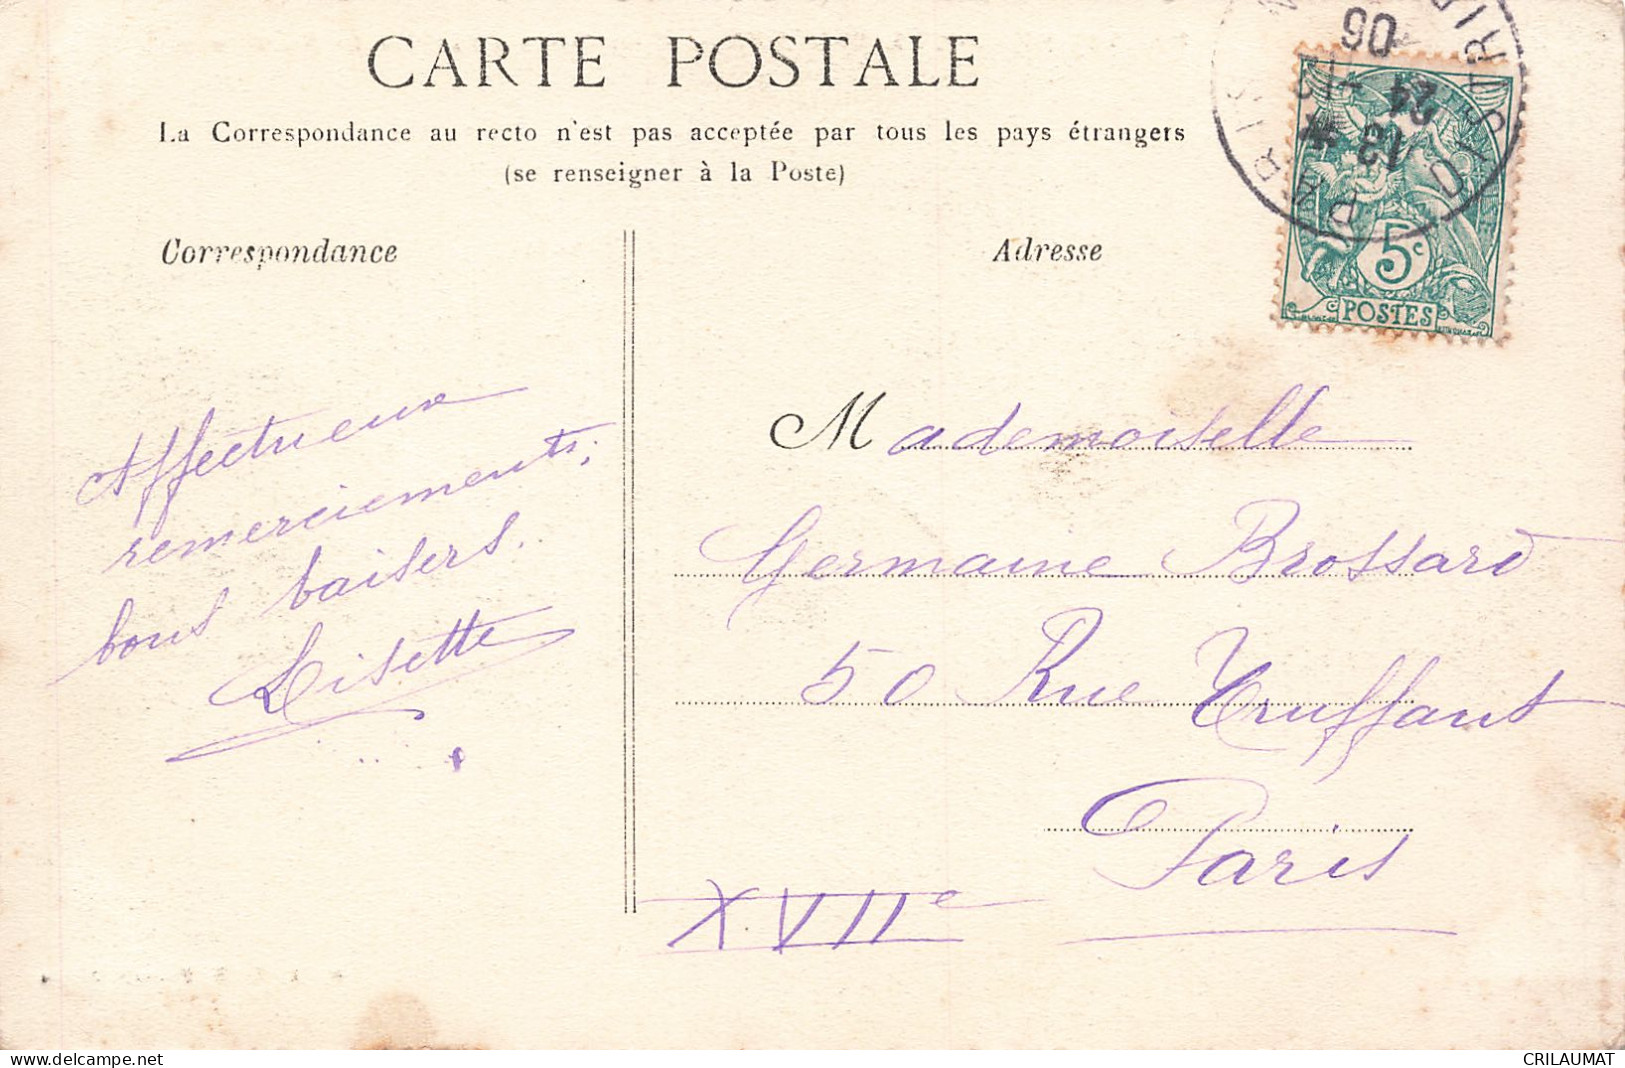 CARTE POSTALE
La Correspondance au recto n'est pas acceptée par tous les pays étrangers
(se renseigner à la Poste)
Correspondance
Adresse
5c
POSTES
PARIS
DISTRI
13
24
06
Affectueux
remerciements;
bons baisers.
Lisette
Mademoiselle
Germaine Brossard
50 Rue Truffaut
Paris
XVIIe
www.delcampe.net
CRILAUMAT